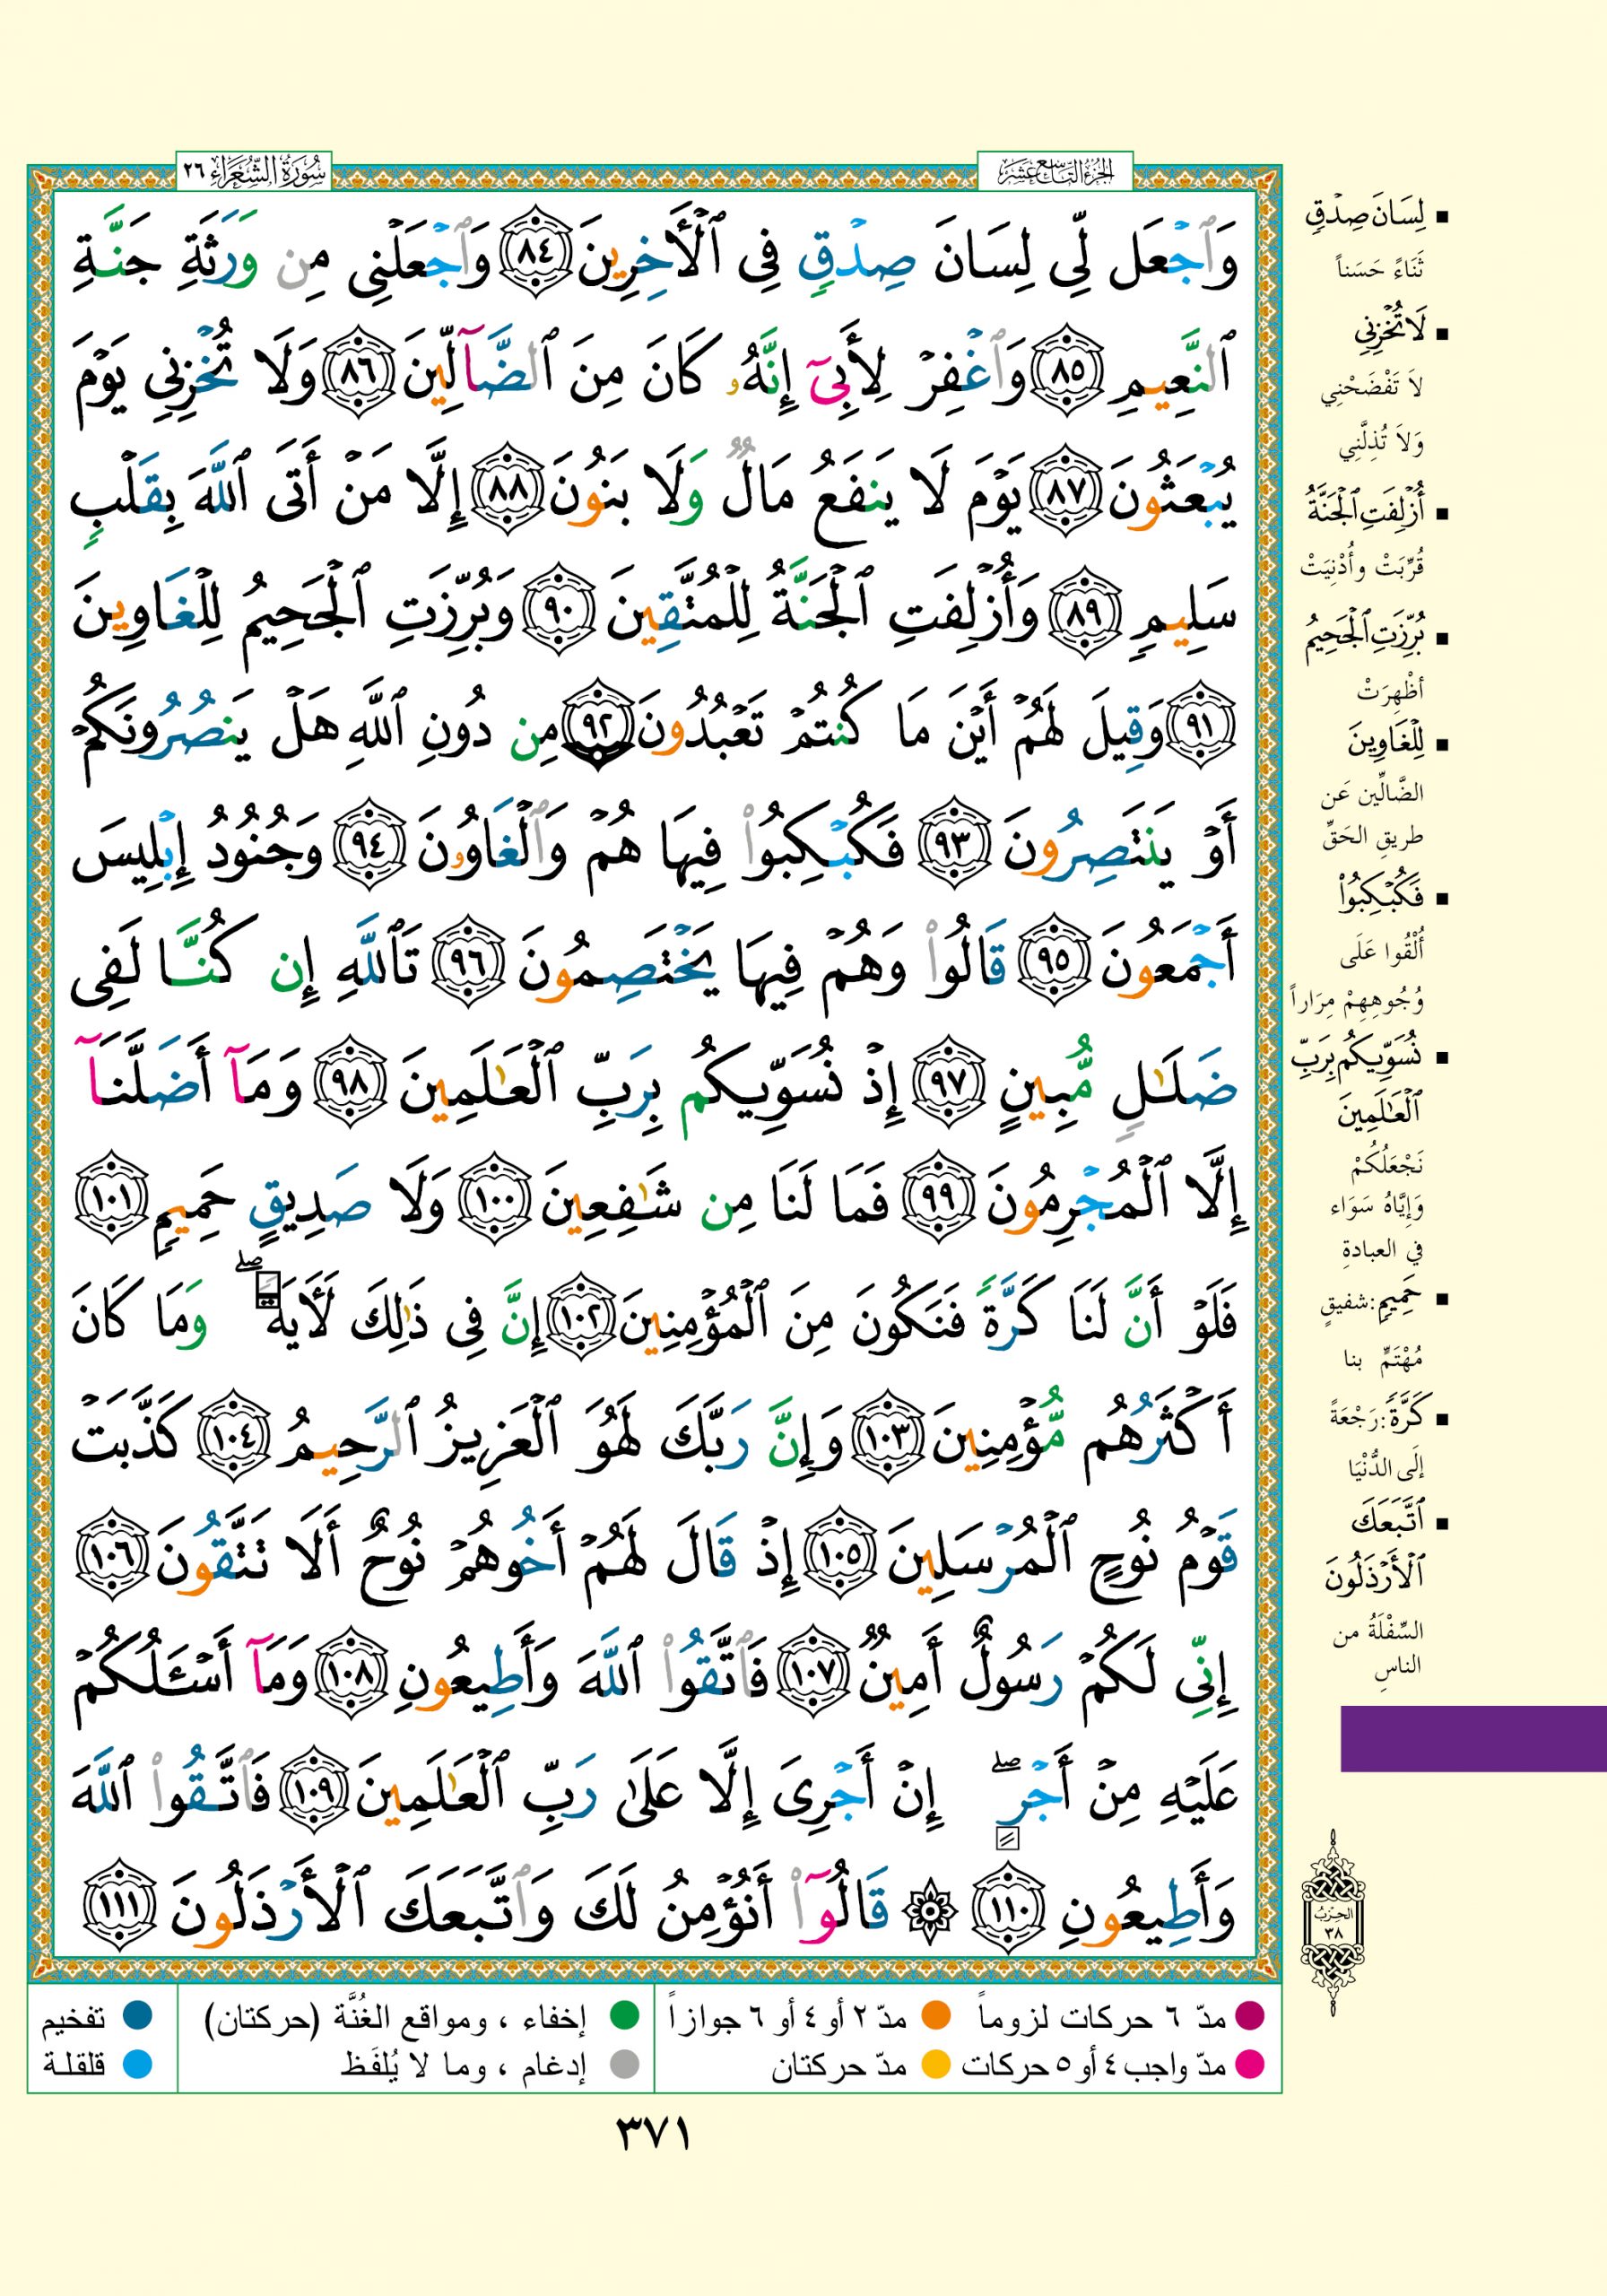 الجزء التاسع عشر
سورة الشعراء ٢٦
وَٱجْعَل لِّى لِسَانَ صِدْقٍ فِى ٱلْأَخِرِينَ ٨٤ وَٱجْعَلْنِى مِن وَرَثَةِ جَنَّةِ
ٱلنَّعِيمِ ٨٥ وَٱغْفِرْ لِأَبِىٓ إِنَّهُۥ كَانَ مِنَ ٱلضَّآلِّينَ ٨٦ وَلَا تُخْزِنِى يَوْمَ
يُبْعَثُونَ ٨٧ يَوْمَ لَا يَنفَعُ مَالٌ وَلَا بَنُونَ ٨٨ إِلَّا مَنْ أَتَى ٱللَّهَ بِقَلْبٍ
سَلِيمٍ ٨٩ وَأُزْلِفَتِ ٱلْجَنَّةُ لِلْمُتَّقِينَ ٩٠ وَبُرِّزَتِ ٱلْجَحِيمُ لِلْغَاوِينَ
٩١ وَقِيلَ لَهُمْ أَيْنَ مَا كُنتُمْ تَعْبُدُونَ ٩٢ مِن دُونِ ٱللَّهِ هَلْ يَنصُرُونَكُمْ
أَوْ يَنتَصِرُونَ ٩٣ فَكُبْكِبُوا۟ فِيهَا هُمْ وَٱلْغَاوُۥنَ ٩٤ وَجُنُودُ إِبْلِيسَ
أَجْمَعُونَ ٩٥ قَالُوا۟ وَهُمْ فِيهَا يَخْتَصِمُونَ ٩٦ تَٱللَّهِ إِن كُنَّا لَفِى
ضَلَـٰلٍ مُّبِينٍ ٩٧ إِذْ نُسَوِّيكُم بِرَبِّ ٱلْعَـٰلَمِينَ ٩٨ وَمَآ أَضَلَّنَآ
إِلَّا ٱلْمُجْرِمُونَ ٩٩ فَمَا لَنَا مِن شَـٰفِعِينَ ١٠٠ وَلَا صَدِيقٍ حَمِيمٍ ١٠١
فَلَوْ أَنَّ لَنَا كَرَّةً فَنَكُونَ مِنَ ٱلْمُؤْمِنِينَ ١٠٢ إِنَّ فِى ذَٰلِكَ لَأَيَةً ۖ وَمَا كَانَ
أَكْثَرُهُم مُّؤْمِنِينَ ١٠٣ وَإِنَّ رَبَّكَ لَهُوَ ٱلْعَزِيزُ ٱلرَّحِيمُ ١٠٤ كَذَّبَتْ
قَوْمُ نُوحٍ ٱلْمُرْسَلِينَ ١٠٥ إِذْ قَالَ لَهُمْ أَخُوهُمْ نُوحٌ أَلَا تَتَّقُونَ ١٠٦
إِنِّى لَكُمْ رَسُولٌ أَمِينٌ ١٠٧ فَٱتَّقُوا۟ ٱللَّهَ وَأَطِيعُونِ ١٠٨ وَمَآ أَسْـَٔلُكُمْ
عَلَيْهِ مِنْ أَجْرٍ ۖ إِنْ أَجْرِىَ إِلَّا عَلَىٰ رَبِّ ٱلْعَـٰلَمِينَ ١٠٩ فَٱتَّقُوا۟ ٱللَّهَ
وَأَطِيعُونِ ١١٠ ۞ قَالُوٓا۟ أَنُؤْمِنُ لَكَ وَٱتَّبَعَكَ ٱلْأَرْذَلُونَ ١١١
▪ لِسَانَ صِدْقٍ
ثَنَاءً حَسَناً
▪ لَا تُخْزِنِى
لاَ تَفْضَحْنِي
وَلاَ تُذِلَّنِي
▪ أُزْلِفَتِ ٱلْجَنَّةُ
قُرِّبَتْ وأُدْنِيَتْ
▪ بُرِّزَتِ ٱلْجَحِيمُ
أظْهِرَتْ
▪ لِلْغَاوِينَ
الضَّالِّين عَن
طريقِ الحَقِّ
▪ فَكُبْكِبُوا۟
أُلْقُوا عَلَى
وُجُوهِهِمْ مِرَاراً
▪ نُسَوِّيكُم بِرَبِّ
ٱلْعَـٰلَمِينَ
نَجْعَلُكُمْ
وَإِيَّاهُ سَوَاء
في العبادةِ
▪ حَمِيمٍ: شفيقٍ
مُهْتَمٍّ بنا
▪ كَرَّةً: رَجْعَةً
إلَى الدُّنْيَا
▪ ٱتَّبَعَكَ
ٱلْأَرْذَلُونَ
السِّفْلَةُ من
الناسِ
الحزب
٣٨
مدّ ٦ حركات لزوماً مدّ ٢ أو ٤ أو ٦ جوازاً إخفاء ، ومواقع الغُنَّة (حركتان) تفخيم
مدّ واجب ٤ أو ٥ حركات مدّ حركتان إدغام ، وما لا يُلفَظ قلقلة
٣٧١